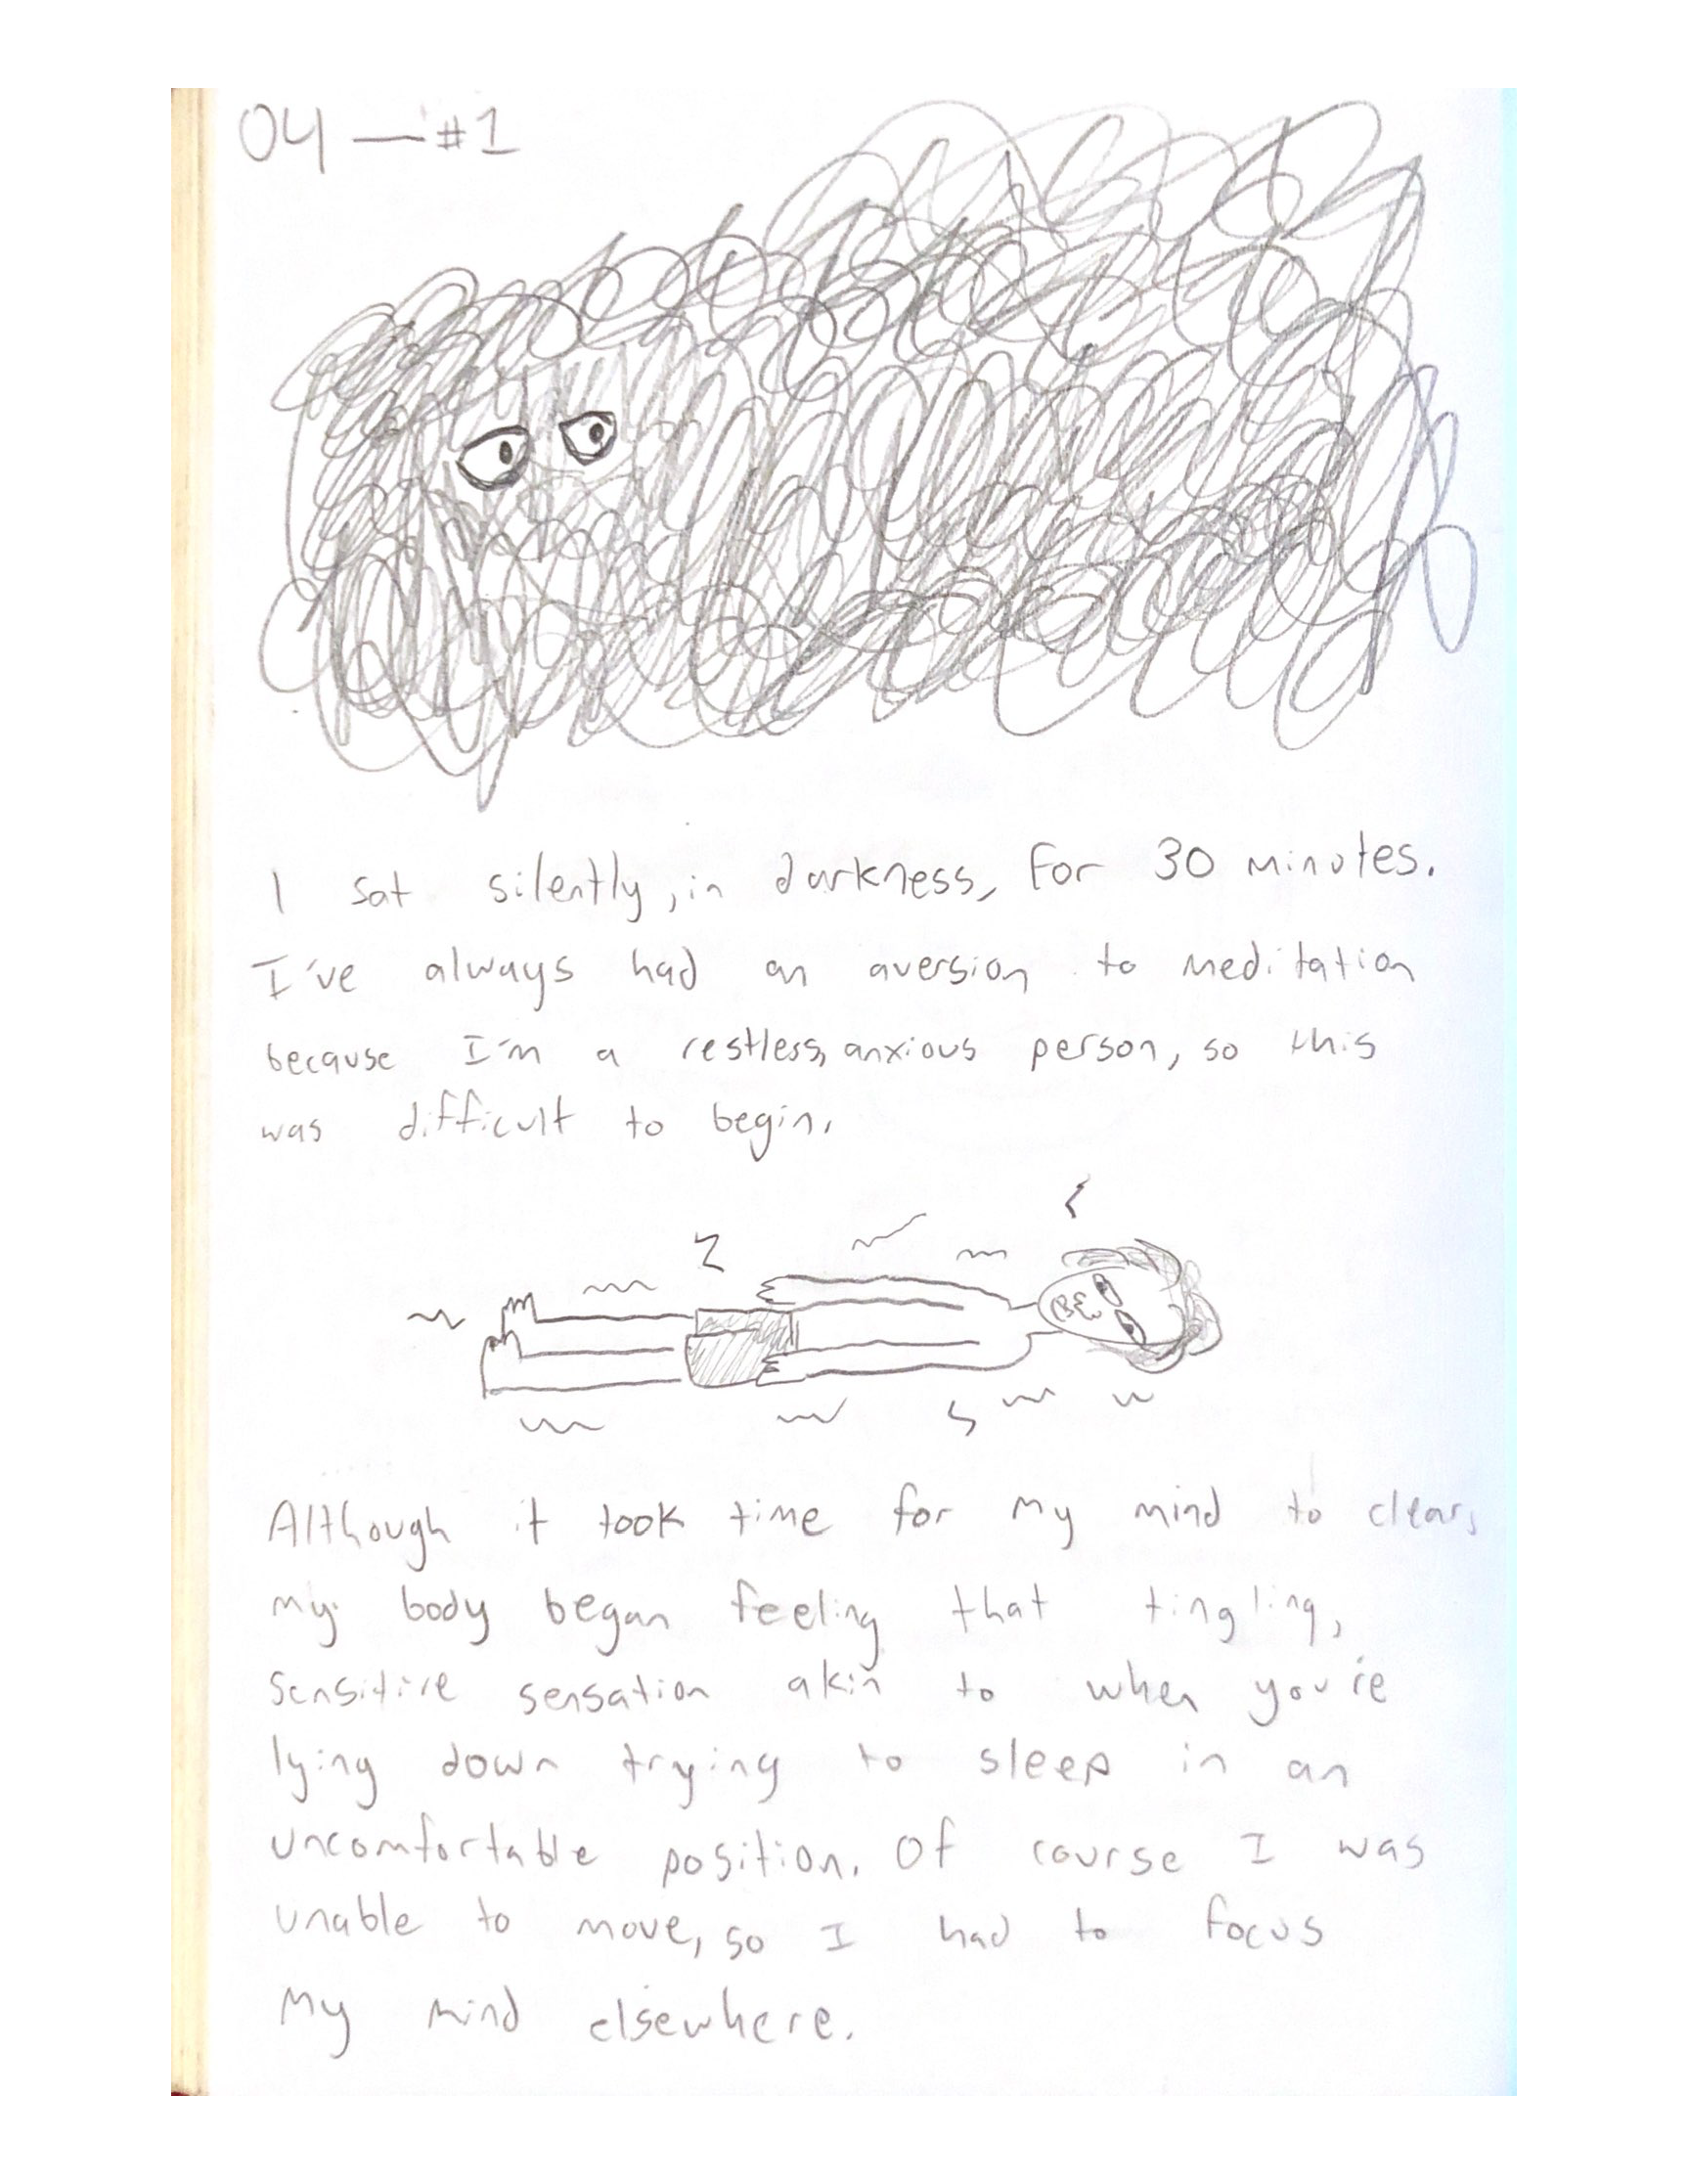 04 — #1
I sat silently, in darkness, for 30 minutes.
I've always had an aversion to meditation
because I'm a restless, anxious person, so this
was difficult to begin.
Although it took time for my mind to clear,
my body began feeling that tingling,
sensitive sensation akin to when you're
lying down trying to sleep in an
uncomfortable position. Of course I was
unable to move, so I had to focus
my mind elsewhere.